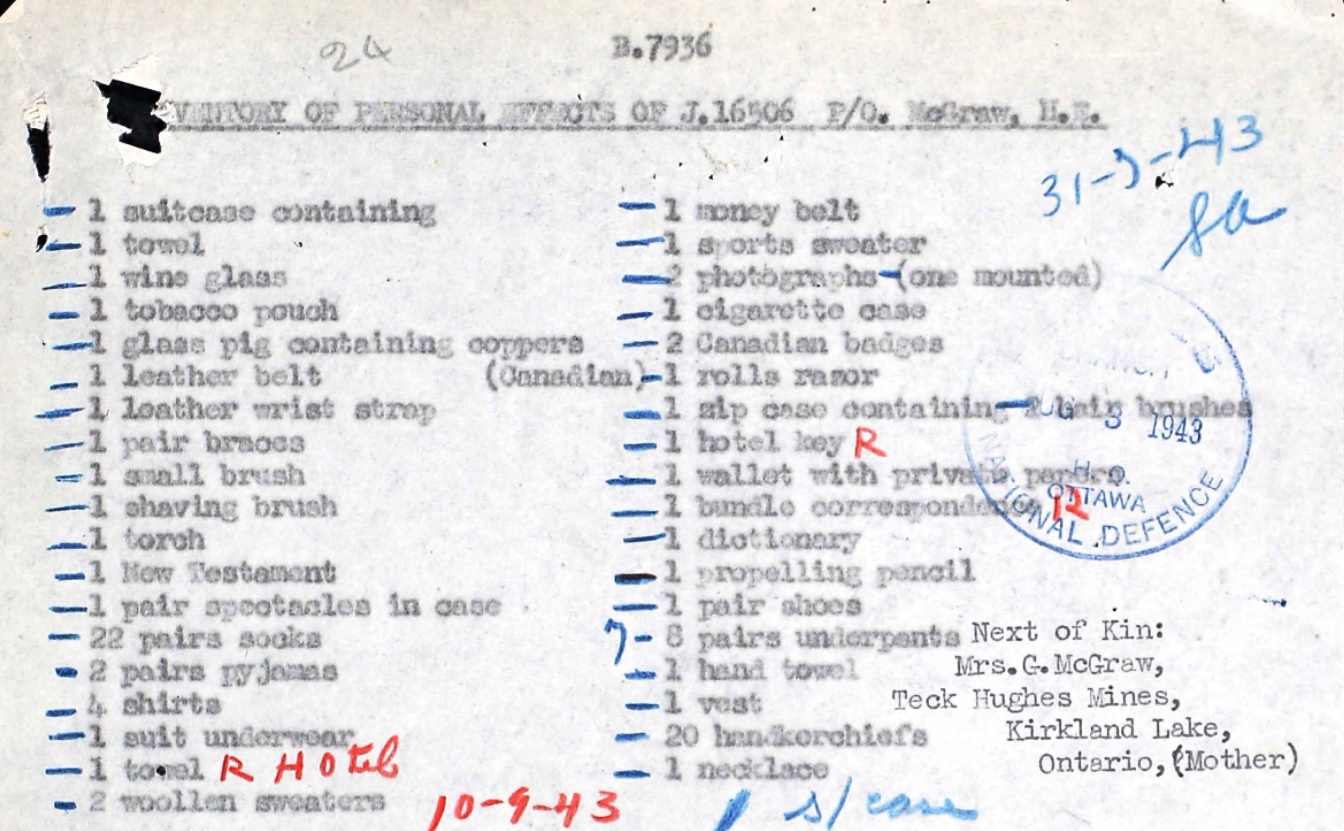 24
B.7936
VENTORY OF PERSONAL EFFECTS OF J.16506 P/O. McGraw, H.E.
31-7-43
1 suitcase containing
1 towel
1 wine glass
1 tobacco pouch
1 glass pig containing coppers
1 leather belt (Canadian)
1 leather wrist strap
1 pair braces
1 small brush
1 shaving brush
1 torch
1 New Testament
1 pair spectacles in case
22 pairs socks
2 pairs pyjamas
4 shirts
1 suit underwear
1 towel R Hotel
2 woollen sweaters
10-9-43
1 money belt
1 sports sweater
2 photographs-(one mounted)
1 cigarette case
2 Canadian badges
1 rolls razor
1 zip case containing 2 hair brushes
1 hotel key R
1 wallet with private papers
1 bundle correspondence R
1 dictionary
1 propelling pencil
1 pair shoes
7- 8 pairs underpants
1 hand towel
1 vest
20 handkerchiefs
1 necklace
s/case
AUG 3 1943
H.Q.
OTTAWA
NATIONAL DEFENCE
Next of Kin:
Mrs.G.McGraw,
Teck Hughes Mines,
Kirkland Lake,
Ontario,(Mother)